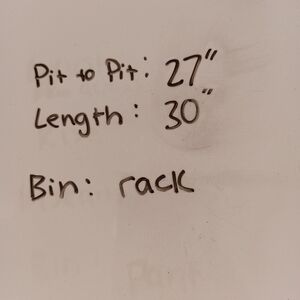 Pit to Pit: 27"
Length: 30"
Bin: rack